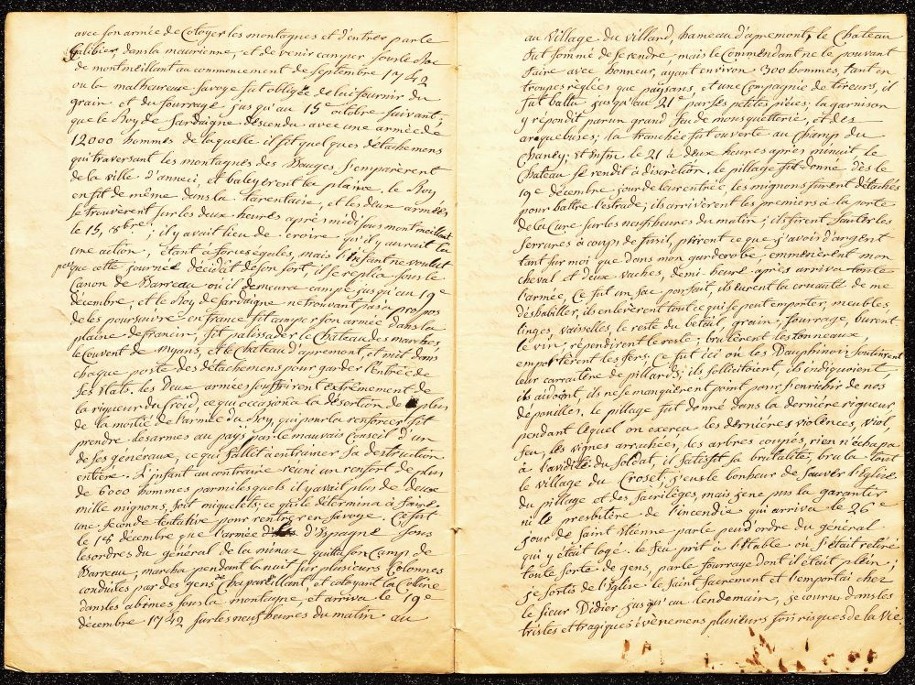 avec son armée de Cotoyer les montagnes et d'entrer par le
Galibier dans la maurienne, et de venir camper sous le Roc
de montmeillant au commencement de septembre 1742
ou la malheureuse savoye fut obligée de lui fournir du
grain et du fourrage jusqu'au 15e octobre suivant,
que le Roy de Sardaigne descendu avec une armée de
12000 hommes de laquelle il fit quelques détachements
qui traversant les montagnes des Bauges s'emparerent
de la ville d'anneci, et baleyerent la plaine. le Roy
en fit de même dans la tarentaise, et les deux armées
se trouvèrent sur les deux heures après midi sous montmeillant
le 15, 8bre; il y avait lieu de croire qu'il y aurait la
une action, étant a forces égales, mais l'Infant ne voulut
pas que cette journée décidât de son sort, il se replia sous le
Canon de Barreau où il demeura campé jusqu'au 19e
décembre, et le Roy de sardaigne ne trouvant pas a propos
de les poursuivre en france fit camper son armée dans la
plaine de francin, fit palissader le Chateau des marches,
le Couvent de myans, et le Chateau d'apremont, et mit dans
chaque poste des détachemens pour garder l'entrée de
ses états. les Deux armées souffrirent extrêmement de
la rigueur du froid, ce qui occasiona la désertion de plus
de la moitié de l'armée du Roy, qui pour la renforcer fit
prendre les armes au païs par le mauvais Conseil d'un
de ses généraux, ce qui fallit a entrainer sa destruction
entière. L'infant au contraire reçut un renfort de plus
de 6000 hommes parmi lesquels il y avait plus de deux
mille mignons, soit miquelets; ce qui le détermina à faire
une seconde tentative pour rentrer en savoye. Ce fut
le 18 décembre que l'armée d'Espagne sous
les ordres du général de la minas quitta son Camp de
Barreau; marcha pendant la nuit sur plusieurs Colonnes
conduites par des gens de Chapareillant et cotoyant la Coline
dans les abimes sous la montagne, et arriva le 19e
décembre 1742 sur les neuf heures du matin au
au village du villard, hameau d'apremont, le Chateau
fut sommé de se rendre mais le Commendant ne le pouvant
faire avec honneur, ayant environ 300 hommes, tant en
troupes réglées que paysans, et une Compagnie de tireurs, il
fut battu jusqu'au 21e par ses petites pièces; la garnison
y répondit par un grand feu de mousquetterie, et des
arquebuses; la tranchée fut ouverte au Champ du
Chaney; Enfin le 21 à deux heures après minuit le
Chateau se rendit à discrétion. le pillage fut donné dès le
19e décembre jour de leur entrée, les mignons furent détachés
pour battre l'estrade; ils arriverent les premiers a la porte
de la Cure sur les neuf heures du matin; ils firent sauter les
serrures à coups de fusil, prirent ce que j'avois d'argent
tant sur moi que dans mon garderobe, emmenerent mon
cheval et deux vaches, demi heure après arriva toute
l'armée, Ce fut un sac parfait, ils eurent la cruauté de me
déshabiller, ils enleverent tout ce qui se peut emporter, meubles
linges, vaisselles, le reste du betail, grain, fourrage, burent
le vin, répendirent le reste, brulerent les tonneaux,
emporterent les fers. Ce fut ici où les Dauphinois soutinrent
leur carractère de pillards; ils sollicitoient, ils indiquoient,
ils aidoient, ils ne se manquèrent point pour s'enrichir de nos
dépouilles. le pillage fut donné dans la dernière rigueur
pendant lequel on exerca les dernieres violences, viol,
feu, les vignes arrachées, les arbres coupés, rien n'échapa
à l'avidité du soldat, il satisfit sa brutalité, brula tout
le village du Croset; j'eus le bonheur de sauver l'Eglise
du pillage et des sacrilèges, mais je ne pus la garantir
ni le presbitère de l'incendie qui arriva le 26e
jour de saint Etienne par le peu d'ordre du général
qui y était logé. le feu prit a l'étable ou s'était retiré
toute sorte de gens, par le fourrage dont il était plein;
je sortis de l'Eglise le Saint sacrement et l'emportai chez
le sieur Didier jusqu'au lendemain, je courus dans les
tristes et tragiques évènemens plusieurs fois risques de la vie